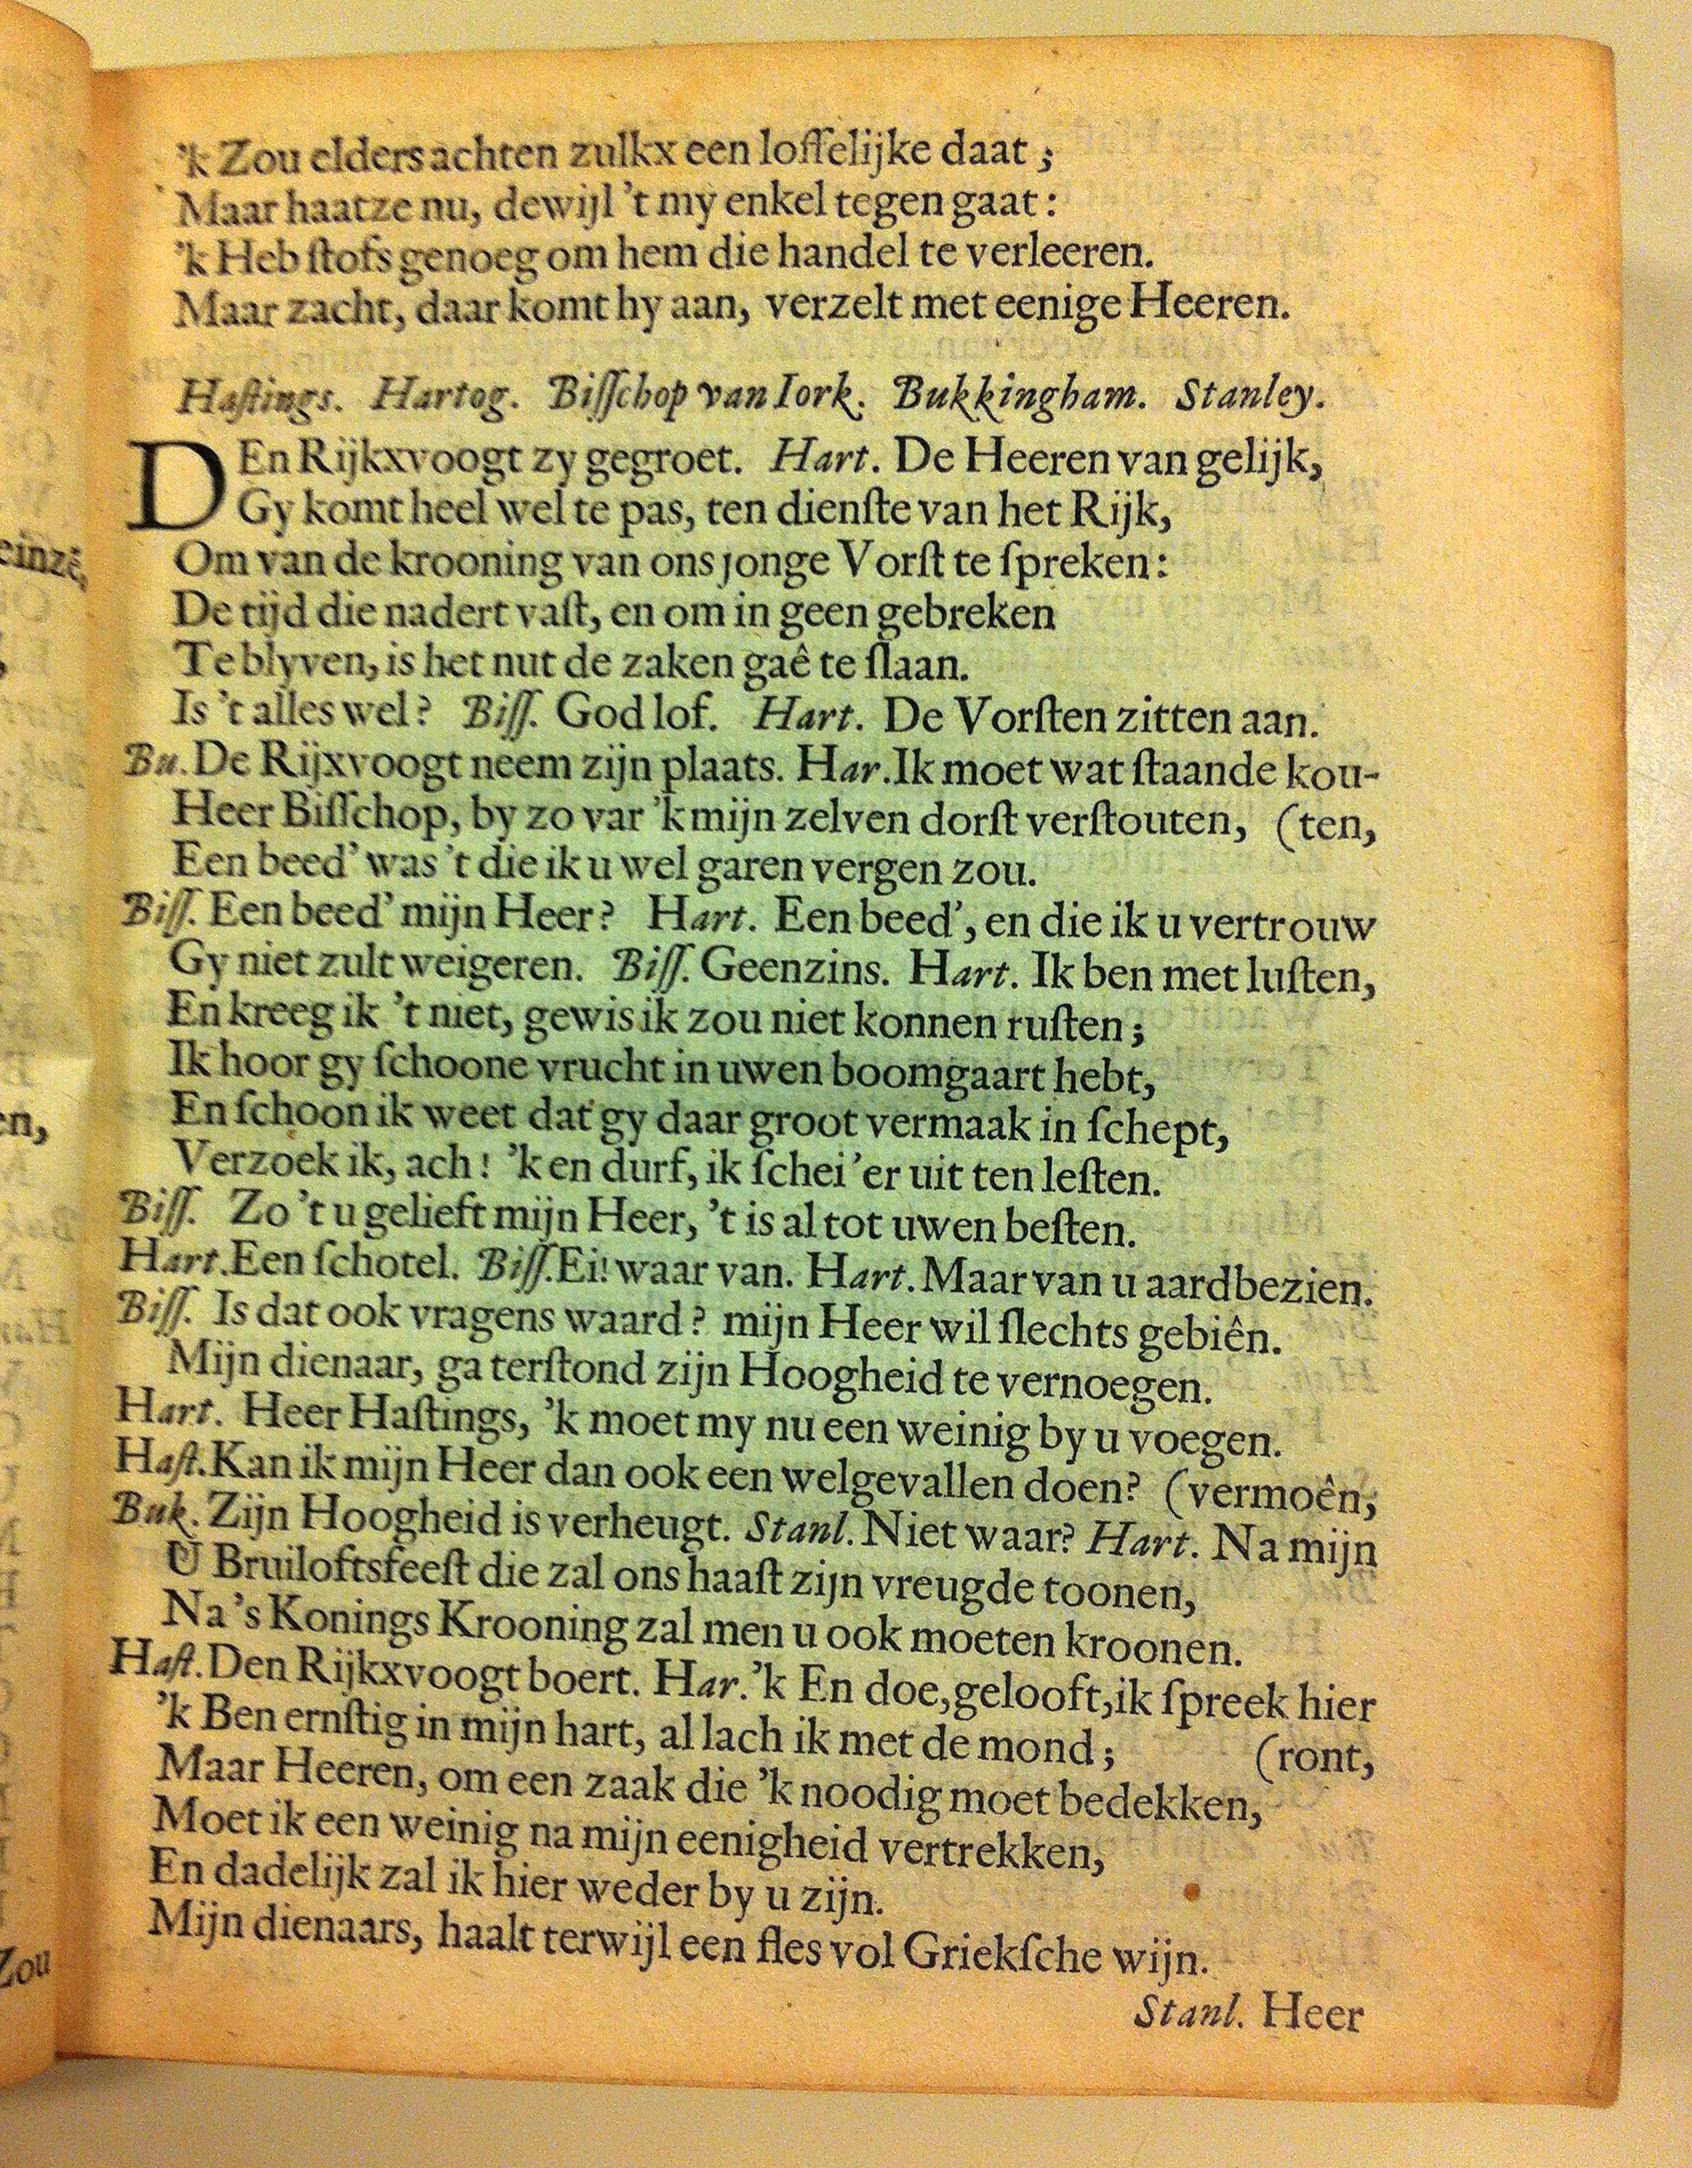 'k Zou elders achten zulkx een loffelijke daat;
Maar haatze nu, dewijl 't my enkel tegen gaat:
'k Heb ſtofs genoeg om hem die handel te verleeren.
Maar zacht, daar komt hy aan, verzelt met eenige Heeren.
Haſtings. Hartog. Biſſchop van Iork. Bukkingham. Stanley.
DEn Rijkxvoogt zy gegroet. Hart. De Heeren van gelijk,
Gy komt heel wel te pas, ten dienſte van het Rijk,
Om van de krooning van ons jonge Vorſt te ſpreken:
De tijd die nadert vaſt, en om in geen gebreken
Te blyven, is het nut de zaken gaê te ſlaan.
Is 't alles wel? Biſſ. God lof. Hart. De Vorſten zitten aan.
Bu. De Rijxvoogt neem zijn plaats. Har. Ik moet wat ſtaande kou-
Heer Biſſchop, by zo var 'k mijn zelven dorſt verſtouten, (ten,
Een beed' was 't die ik u wel garen vergen zou.
Biſſ. Een beed' mijn Heer? Hart. Een beed', en die ik u vertrouw
Gy niet zult weigeren. Biſſ. Geenzins. Hart. Ik ben met luſten,
En kreeg ik 't niet, gewis ik zou niet konnen ruſten;
Ik hoor gy ſchoone vrucht in uwen boomgaart hebt,
En ſchoon ik weet dat gy daar groot vermaak in ſchept,
Verzoek ik, ach! 'k en durf, ik ſchei 'er uit ten leſten.
Biſſ. Zo 't u gelieft mijn Heer, 't is al tot uwen beſten.
Hart. Een ſchotel. Biſſ. Ei! waar van. Hart. Maar van u aardbezien.
Biſſ. Is dat ook vragens waard? mijn Heer wil ſlechts gebiên.
Mijn dienaar, ga terſtond zijn Hoogheid te vernoegen.
Hart. Heer Haſtings, 'k moet my nu een weinig by u voegen.
Haſt. Kan ik mijn Heer dan ook een welgevallen doen? (vermoên,
Buk. Zijn Hoogheid is verheugt. Stanl. Niet waar? Hart. Na mijn
U Bruiloftsfeeſt die zal ons haaſt zijn vreugde toonen,
Na 's Konings Krooning zal men u ook moeten kroonen.
Haſt. Den Rijkxvoogt boert. Har. 'k En doe, gelooft, ik ſpreek hier
'k Ben ernſtig in mijn hart, al lach ik met de mond; (ront,
Maar Heeren, om een zaak die 'k noodig moet bedekken,
Moet ik een weinig na mijn eenigheid vertrekken,
En dadelijk zal ik hier weder by u zijn.
Mijn dienaars, haalt terwijl een fles vol Griekſche wijn.
Stanl. Heer